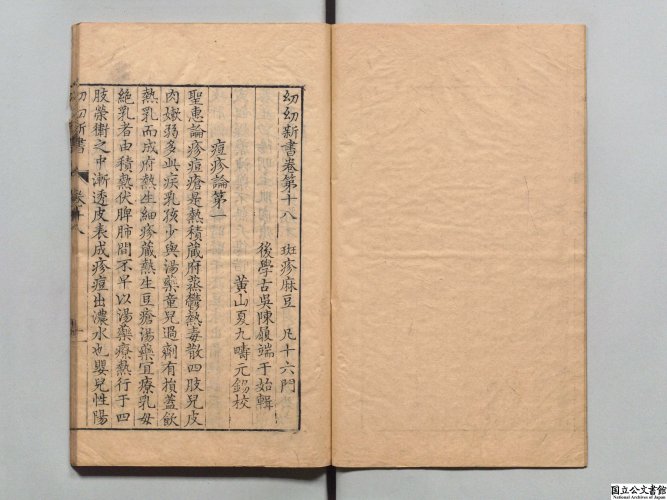 幼幼新書卷第十八 斑疹麻豆 凡十六門
後學古吳陳履端于始輯
黄山夏九疇元錫校
痘疹論第一
聖惠論疹痘瘡是熱積蔵府蒸鬱熱毒散四肢兒皮
肉嫰弱多此疾乳孩少與湯藥童兒過劑有損蓋飲
熱乳而成府熱生細疹蔵熱生豆瘡湯藥宜療乳母
絶乳者由積熱伏脾肺間不早以湯藥療熱行于四
肢榮衛之中漸透皮表成疹痘出濃水也嬰兒性陽
幼幼新書 卷十八 一
国立公文書館
National Archives of Japan